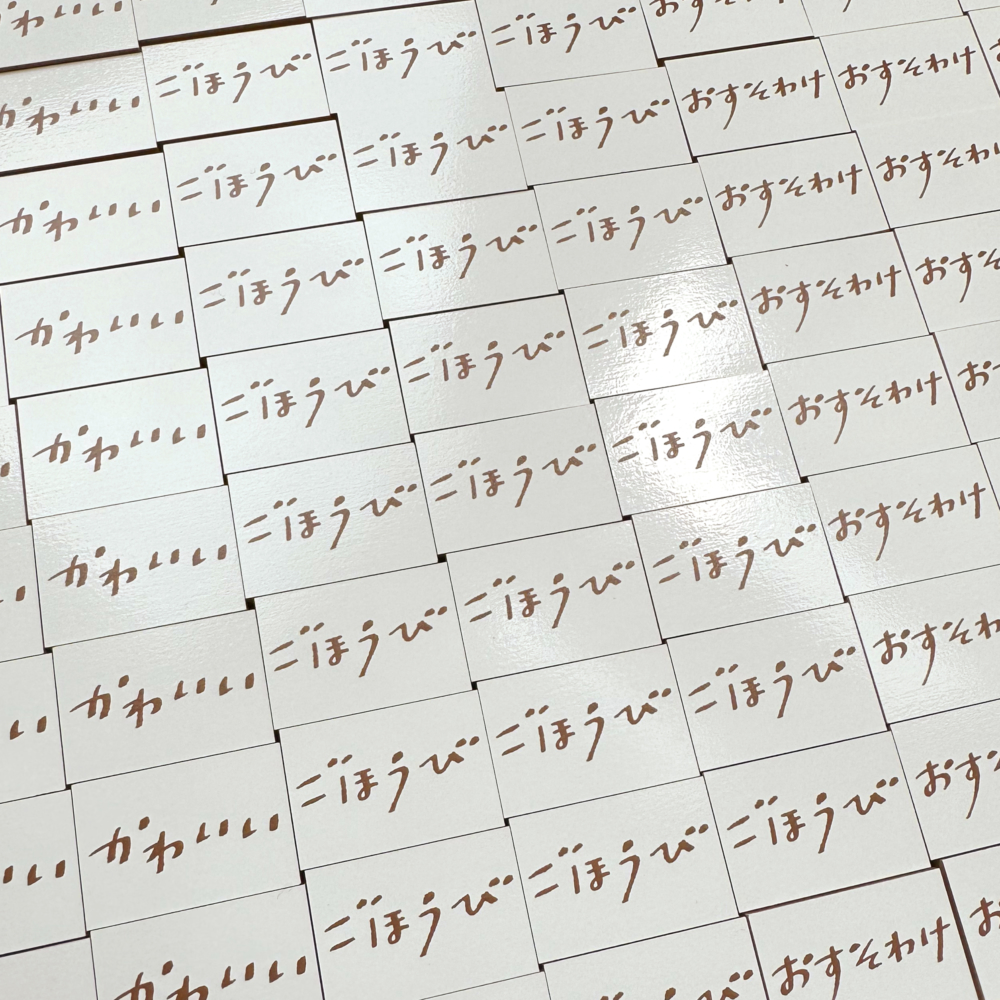 かわいい
かわいい ごほうび ごほうび ごほうび おすそわけ
かわいい ごほうび ごほうび ごほうび おすそわけ おすそわけ
かわいい ごほうび ごほうび ごほうび おすそわけ おすそわけ
かわいい ごほうび ごほうび ごほうび おすそわけ おすそ
かわいい ごほうび ごほうび ごほうび おすそわけ おす
かわいい ごほうび ごほうび ごほうび おすそわけ
いい かわいい ごほうび ごほうび ごほうび おすそわ
いい かわいい ごほうび ごほうび ごほうび おすそ
おすそわけ お